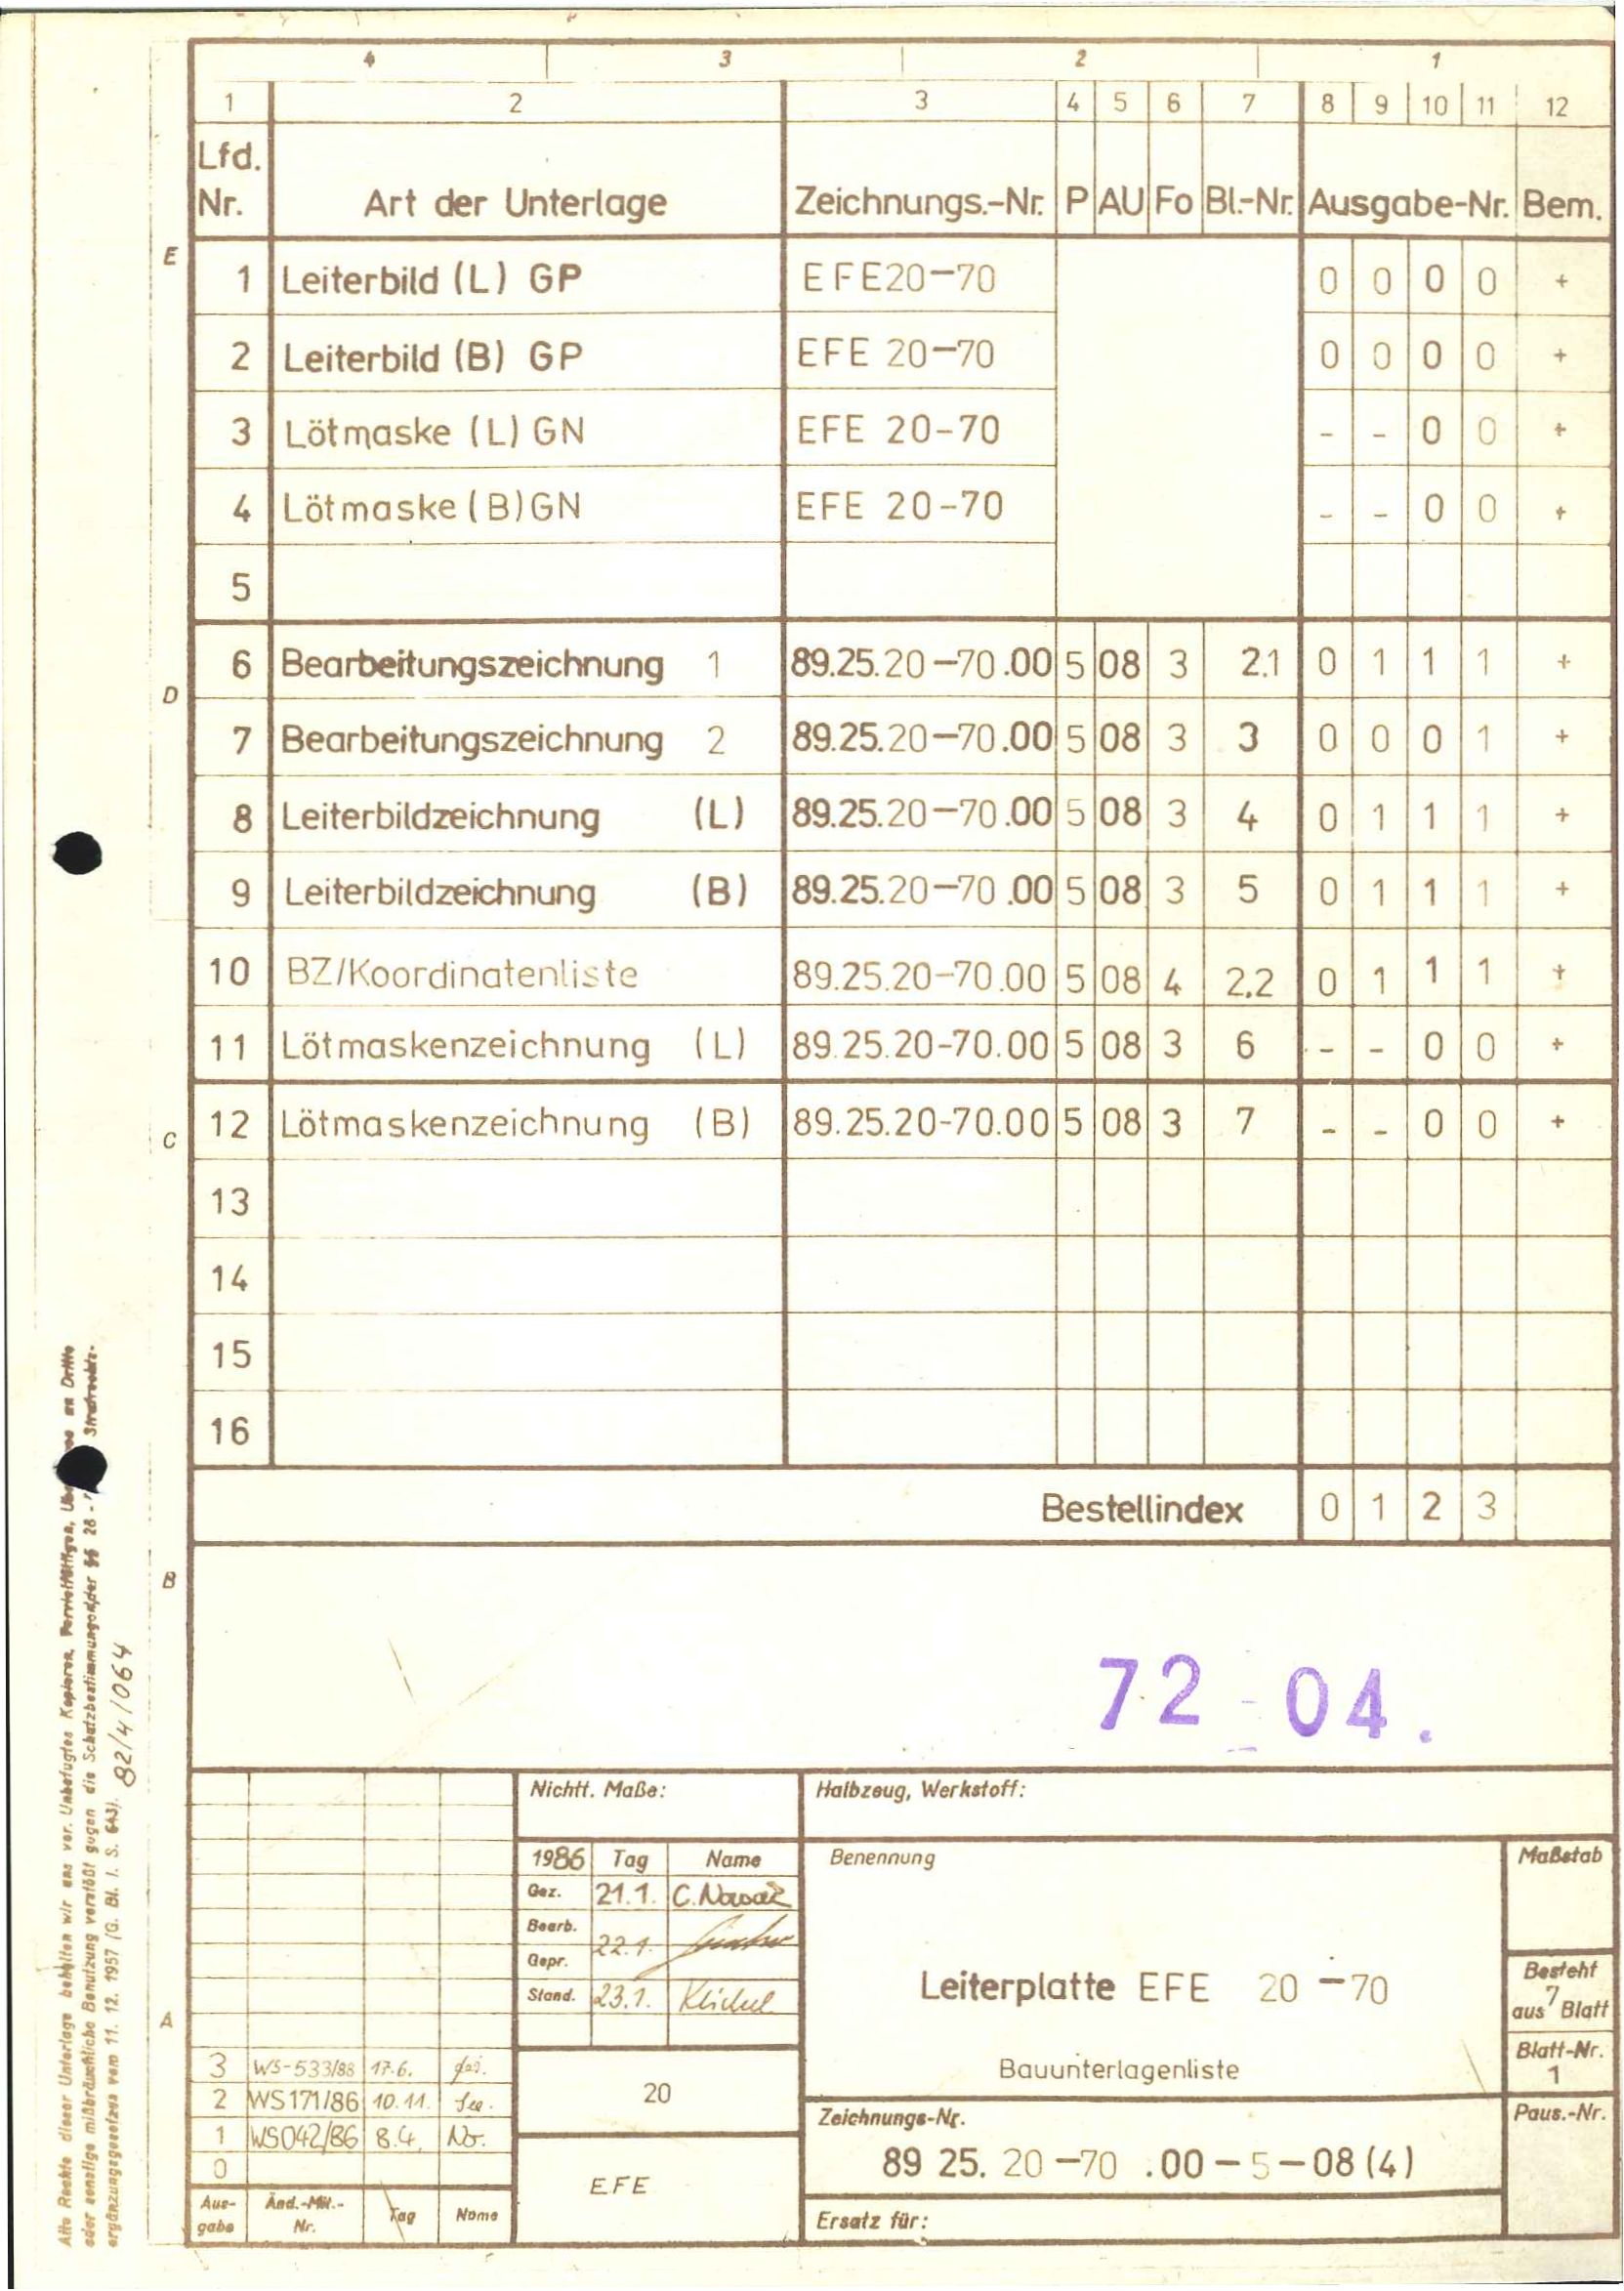 4 3 2 1
1 2 3 4 5 6 7 8 9 10 11 12
Lfd.
Nr. Art der Unterlage Zeichnungs.-Nr. P AU Fo Bl.-Nr. Ausgabe-Nr. Bem.
E
1 Leiterbild (L) GP EFE20-70 0 0 0 0 +
2 Leiterbild (B) GP EFE 20-70 0 0 0 0 +
3 Lötmaske (L) GN EFE 20-70 - - 0 0 +
4 Lötmaske (B) GN EFE 20-70 - - 0 0 +
5
6 Bearbeitungszeichnung 1 89.25.20-70.00 5 08 3 2.1 0 1 1 1 +
D
7 Bearbeitungszeichnung 2 89.25.20-70.00 5 08 3 3 0 0 0 1 +
8 Leiterbildzeichnung (L) 89.25.20-70.00 5 08 3 4 0 1 1 1 +
9 Leiterbildzeichnung (B) 89.25.20-70.00 5 08 3 5 0 1 1 1 +
10 BZ/Koordinatenliste 89.25.20-70.00 5 08 4 2.2 0 1 1 1 +
11 Lötmaskenzeichnung (L) 89.25.20-70.00 5 08 3 6 - - 0 0 +
12 Lötmaskenzeichnung (B) 89.25.20-70.00 5 08 3 7 - - 0 0 +
C
13
14
15
16
Bestellindex 0 1 2 3
B
72 - 04.
Nichtt. Maße: Halbzeug, Werkstoff:
1986 Tag Name
Gez. 21.1. C. Nowak
Bearb.
22.1.
Gepr.
Stand. 23.1.
Benennung
Leiterplatte EFE 20-70
Bauunterlagenliste
Maßstab
Besteht
7
aus Blatt
Blatt-Nr.
1
Paus.-Nr.
A
3 WS-533/88 17.6.
2 WS171/86 10.11.
1 WS042/86 8.4. No.
0
Aus-
gabe
Änd.-Mit.-
Nr.
Tag
Name
20
EFE
Zeichnungs-Nr.
89 25. 20-70 .00-5-08(4)
Ersatz für:
Alle Rechte dieser Unterlage behalten wir uns vor. Unbefugtes Kopieren, Vervielfältigen, an Dritte
oder sonstige mißbräuchliche Benutzung verstößt gegen die Schutzbestimmungen der §§ 28 - Strafrechts-
ergänzungsgesetzes vom 11. 12. 1957 (G. Bl. I. S. 643).
82/4/064